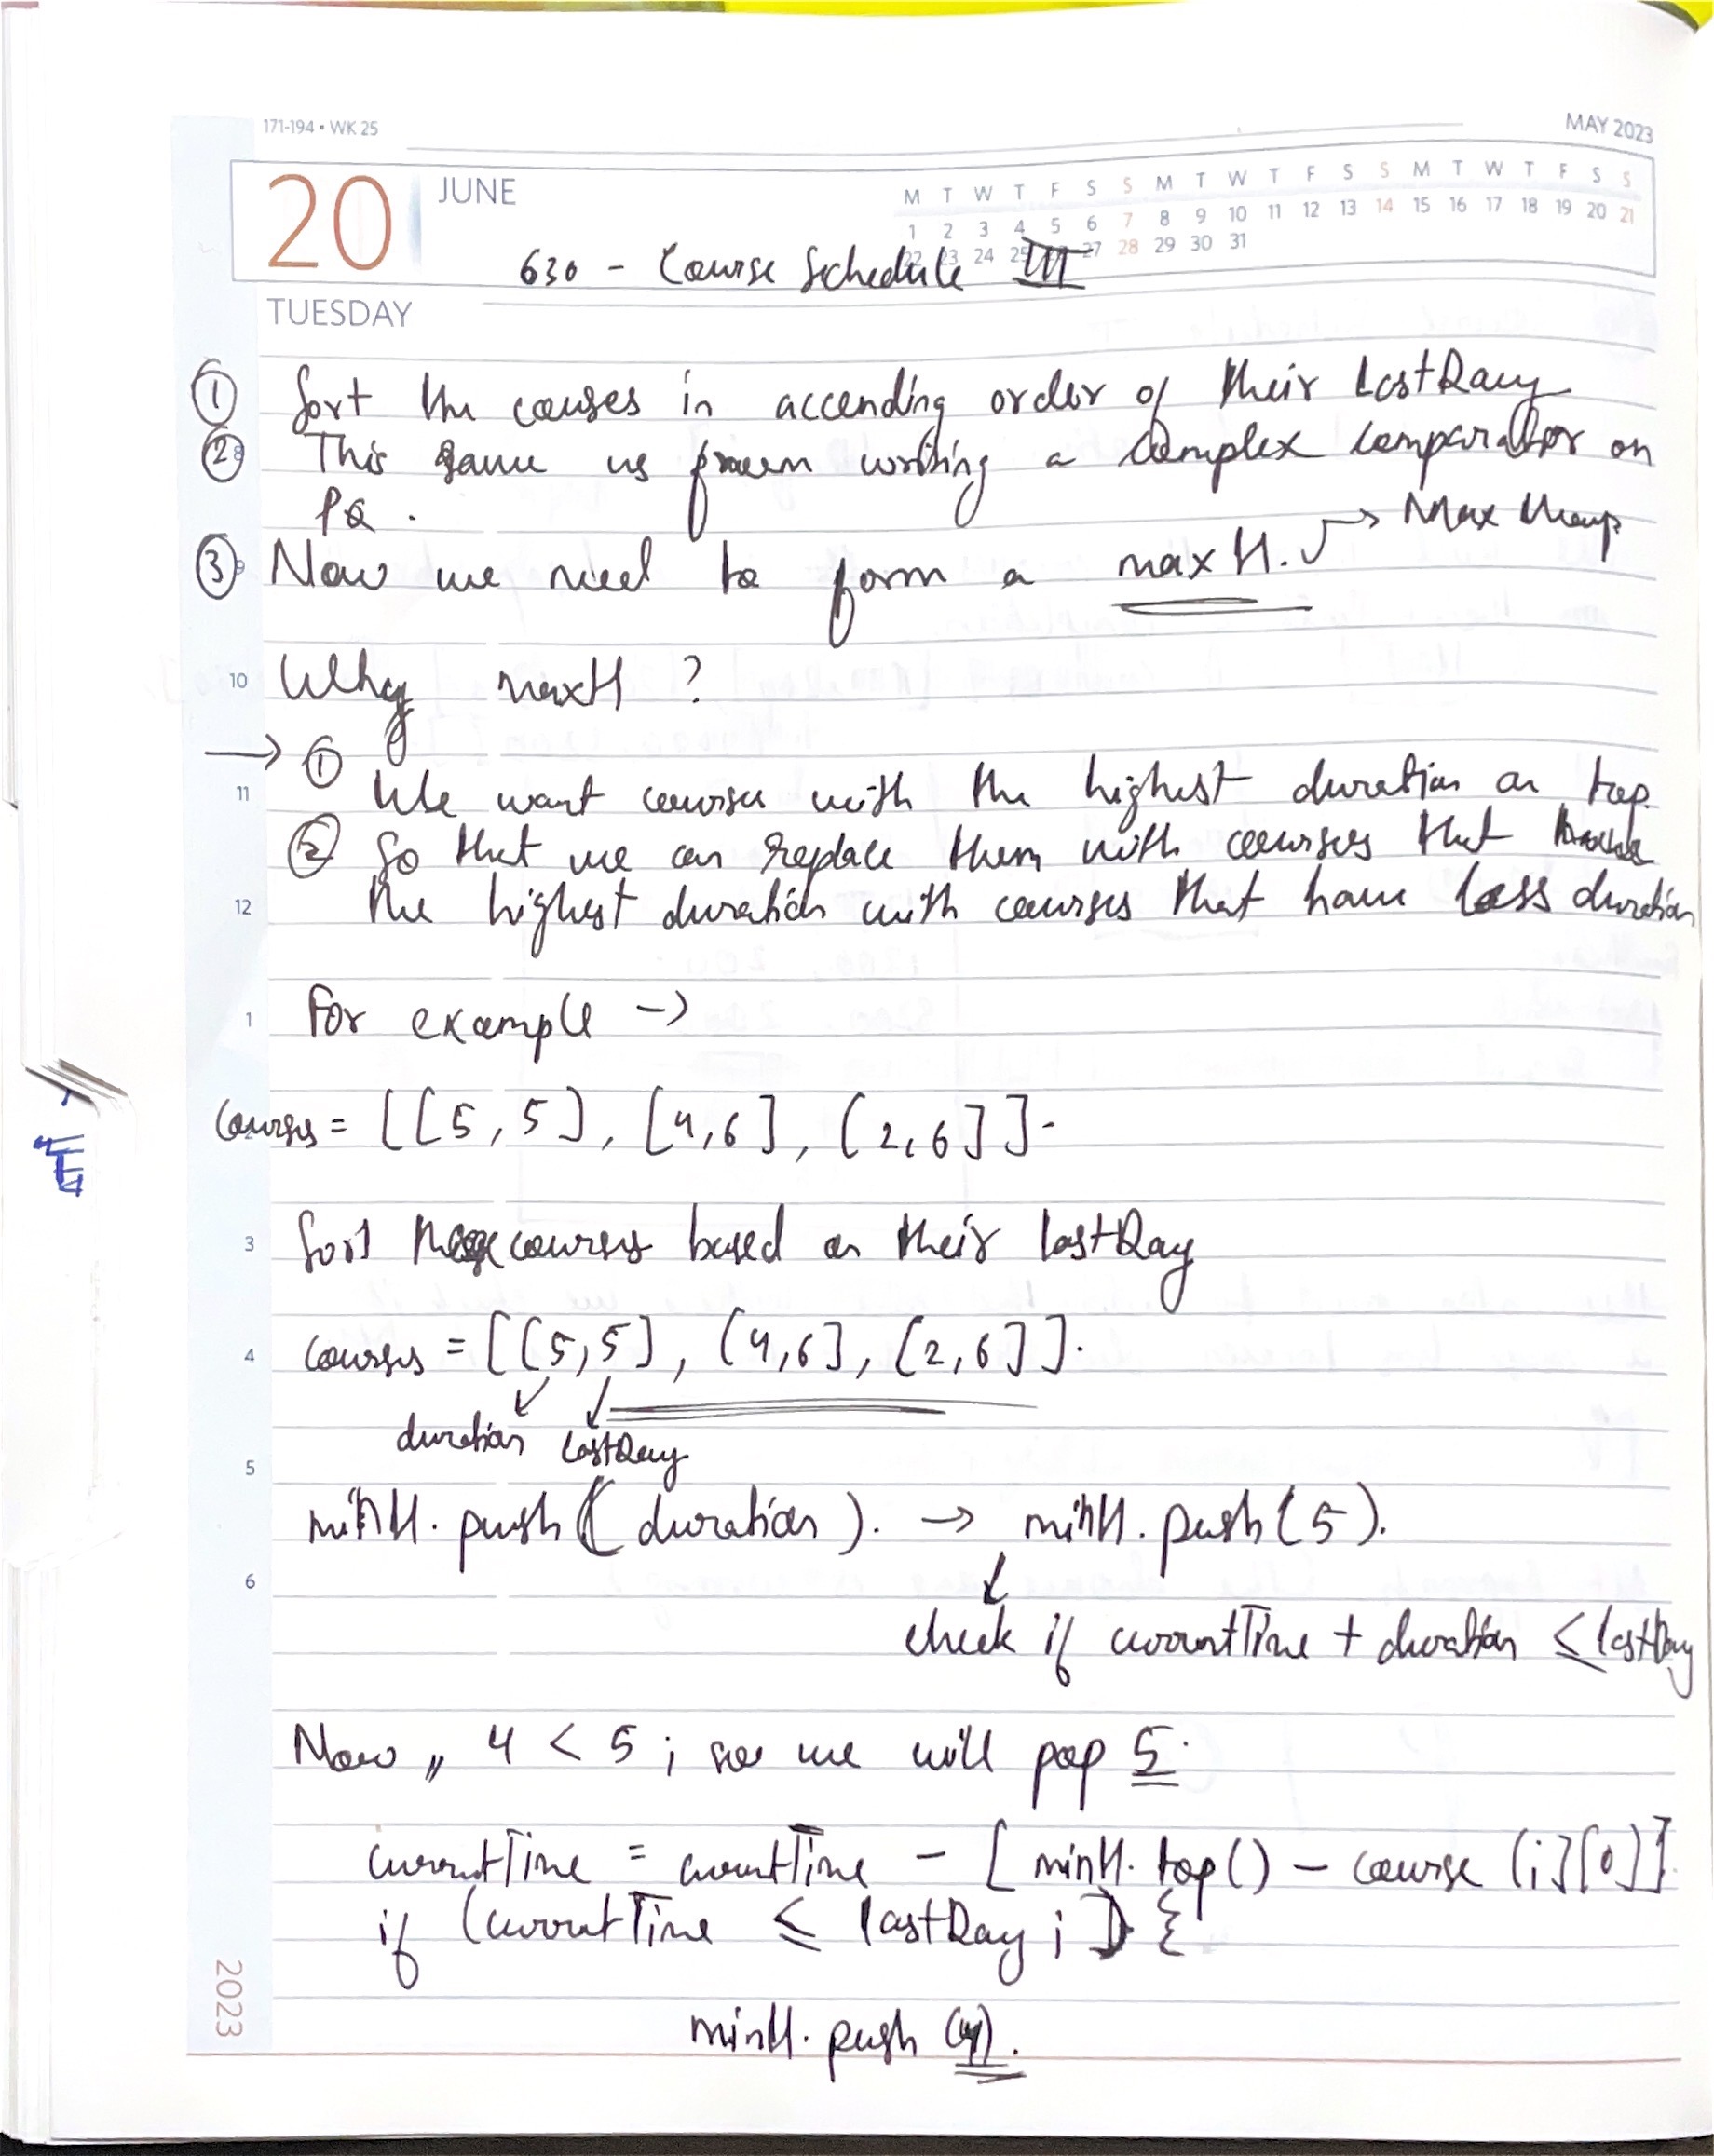 171-194 • WK 25
MAY 2023
20 JUNE
M T W T F S S M T W T F S S M T W T F S S
1 2 3 4 5 6 7 8 9 10 11 12 13 14 15 16 17 18 19 20 21
22 23 24 25 27 28 29 30 31
630 - Course Schedule III
TUESDAY
① Sort the courses in accending order of their LastDay
② This save us from writing a complex comparator on
PQ.
③ Now we need to form a maxH. → Max Heap
10 Why maxH ?
→ ①
11 We want courses with the highest duration on top
② So that we can replace them with courses that
12 the highest duration with courses that have less duration
1 For example →
courses = [[5,5], [4,6], [2,6]].
3 Sort these courses based on their lastDay
4 courses = [[5,5], [4,6], [2,6]].
duration lastDay
5
minH. push (duration). → minH. push(5).
6
check if currentTime + duration ≤ lastDay
Now,, 4 < 5 ; so we will pop 5.
currentTime = currentTime - [minH. top() - course [i][0]]
if (currentTime ≤ lastDay ; ) {
minH. push (4).
2023